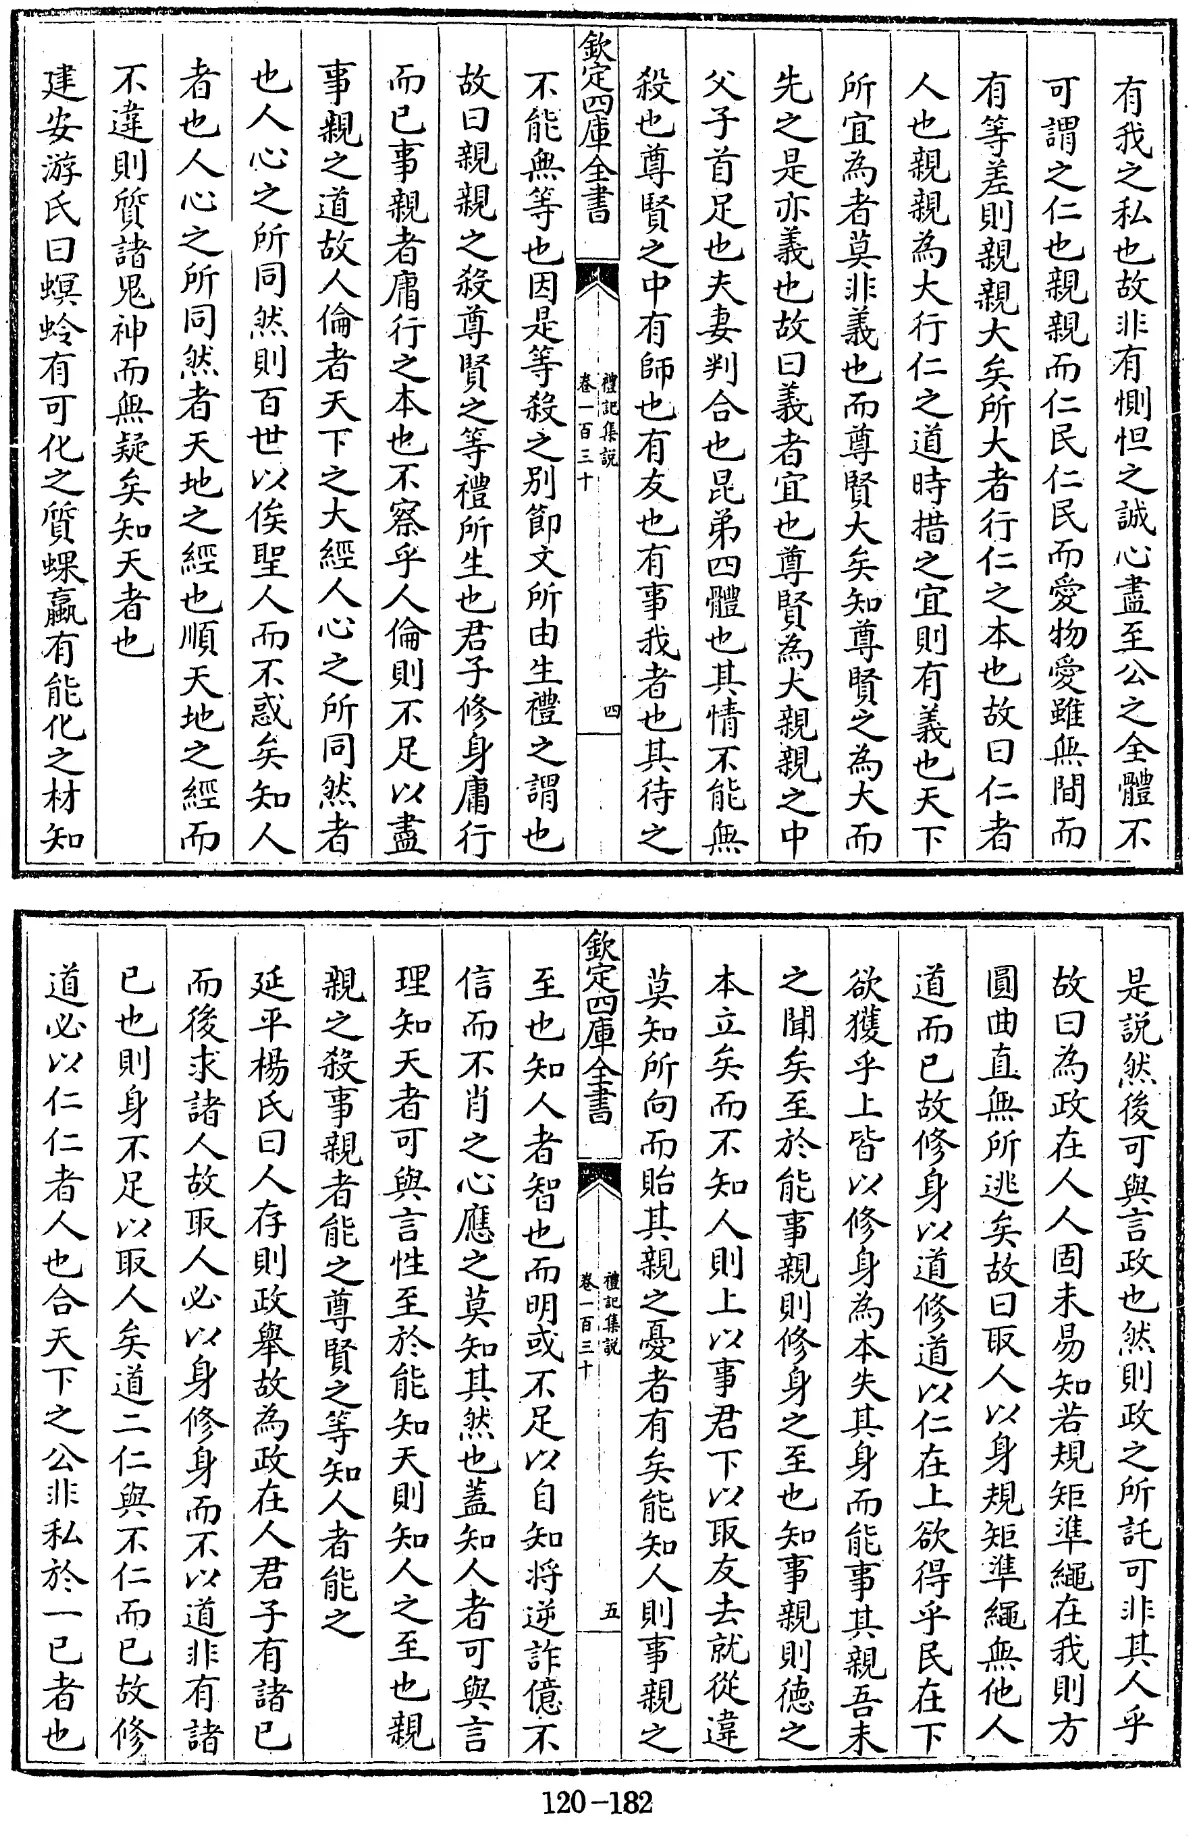 有我之私也故非有惻怛之誠心盡至公之全體不
可謂之仁也親親而仁民仁民而愛物愛雖無間而
有等差則親親大矣所大者行仁之本也故曰仁者
人也親親為大行仁之道時措之宜則有義也天下
所宜為者莫非義也而尊賢大矣知尊賢之為大而
先之是亦義也故曰義者宜也尊賢為大親親之中
父子首足也夫妻判合也昆弟四體也其情不能無
殺也尊賢之中有師也有友也有事我者也其待之
欽定四庫全書
禮記集說
卷一百三十
四
不能無等也因是等殺之别節文所由生禮之謂也
故曰親親之殺尊賢之等禮所生也君子修身庸行
而已事親者庸行之本也不察乎人倫則不足以盡
事親之道故人倫者天下之大經人心之所同然者
也人心之所同然則百世以俟聖人而不惑矣知人
者也人心之所同然者天地之經也順天地之經而
不違則質諸鬼神而無疑矣知天者也
建安游氏曰螟蛉有可化之質蜾蠃有能化之材知
是説然後可與言政也然則政之所託可非其人乎
故曰為政在人人固未易知若規矩準繩在我則方
圓曲直無所逃矣故曰取人以身規矩準繩無他人
道而已故修身以道修道以仁在上欲得乎民在下
欲獲乎上皆以修身為本失其身而能事其親吾未
之聞矣至於能事親則修身之至也知事親則德之
本立矣而不知人則上以事君下以取友去就從違
莫知所向而貽其親之憂者有矣能知人則事親之
欽定四庫全書
禮記集說
卷一百三十
五
至也知人者智也而明或不足以自知將逆詐億不
信而不肖之心應之莫知其然也蓋知人者可與言
理知天者可與言性至於能知天則知人之至也親
親之殺事親者能之尊賢之等知人者能之
延平楊氏曰人存則政舉故為政在人君子有諸已
而後求諸人故取人必以身修身而不以道非有諸
已也則身不足以取人矣道二仁與不仁而已故修
道必以仁仁者人也合天下之公非私於一已者也
120-182